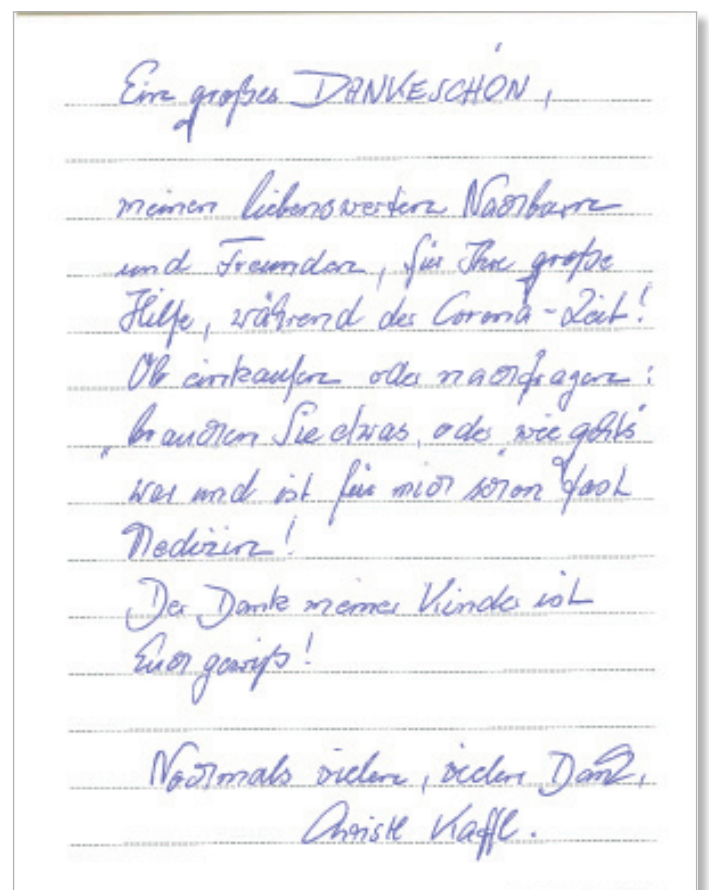 Ein großes DANKESCHÖN,
meinen liebenswerten Nachbarn
und Freunden, für Ihre große
Hilfe, während der Corona-Zeit!
Ob einkaufen oder nachfragen:
„brauchen Sie etwas, oder „wie geht's"
war und ist für mich schon fast
Medizin!
Der Dank meiner Kinder ist
Euch gewiß!
Nochmals vielen, vielen Dank,
Christl Kaffl.